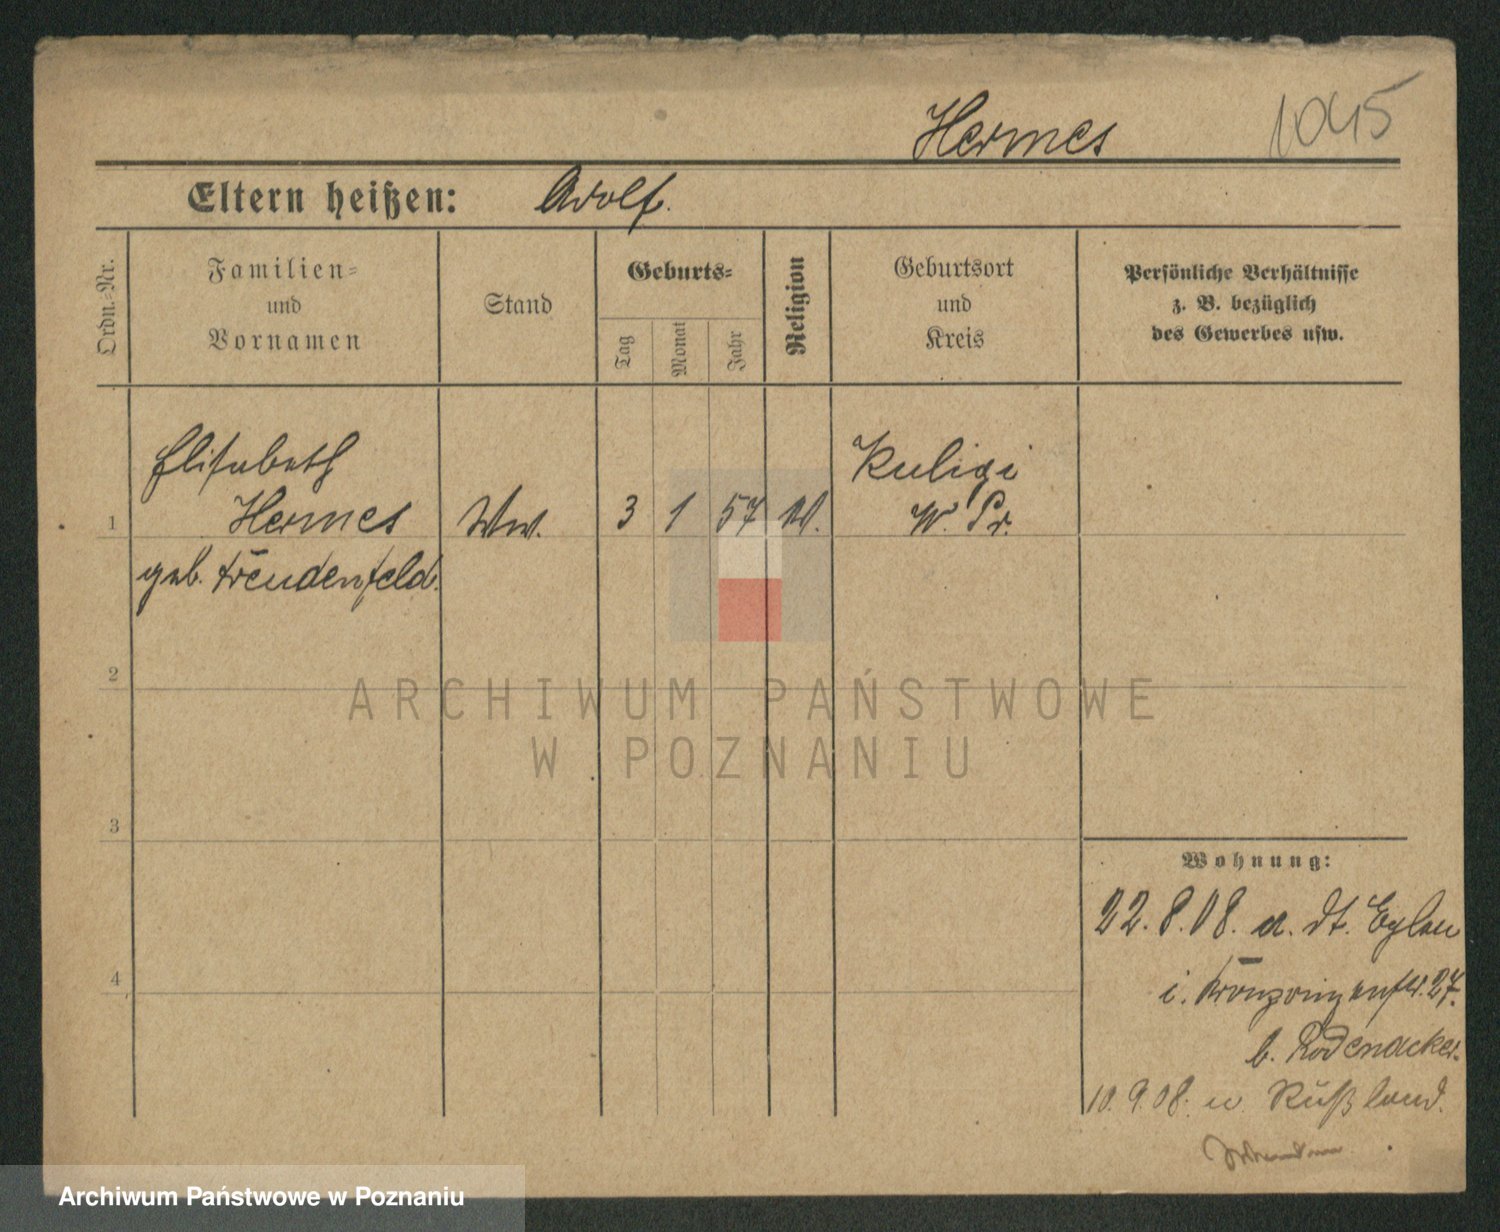 Hermes 1045
Eltern heißen: Adolf.
Ordn.-Nr.
Familien-
und
Vornamen
Stand
Geburts-
Tag
Monat
Jahr
Religion
Geburtsort
und
Kreis
Persönliche Verhältnisse
z. B. bezüglich
des Gewerbes usw.
Elisabeth
Kuligi
1 Hermes Ww. 3 1 57 W. Pr.
geb. Freudenfeld.
2
ARCHIWUM PAŃSTWOWE
W POZNANIU
3
Wohnung:
22.8.08. a. dt. Eylau
4
i. Kronprinzenstr. 27.
b. Rodenacker.
10.9.08. n. Rußland.
Archiwum Państwowe w Poznaniu